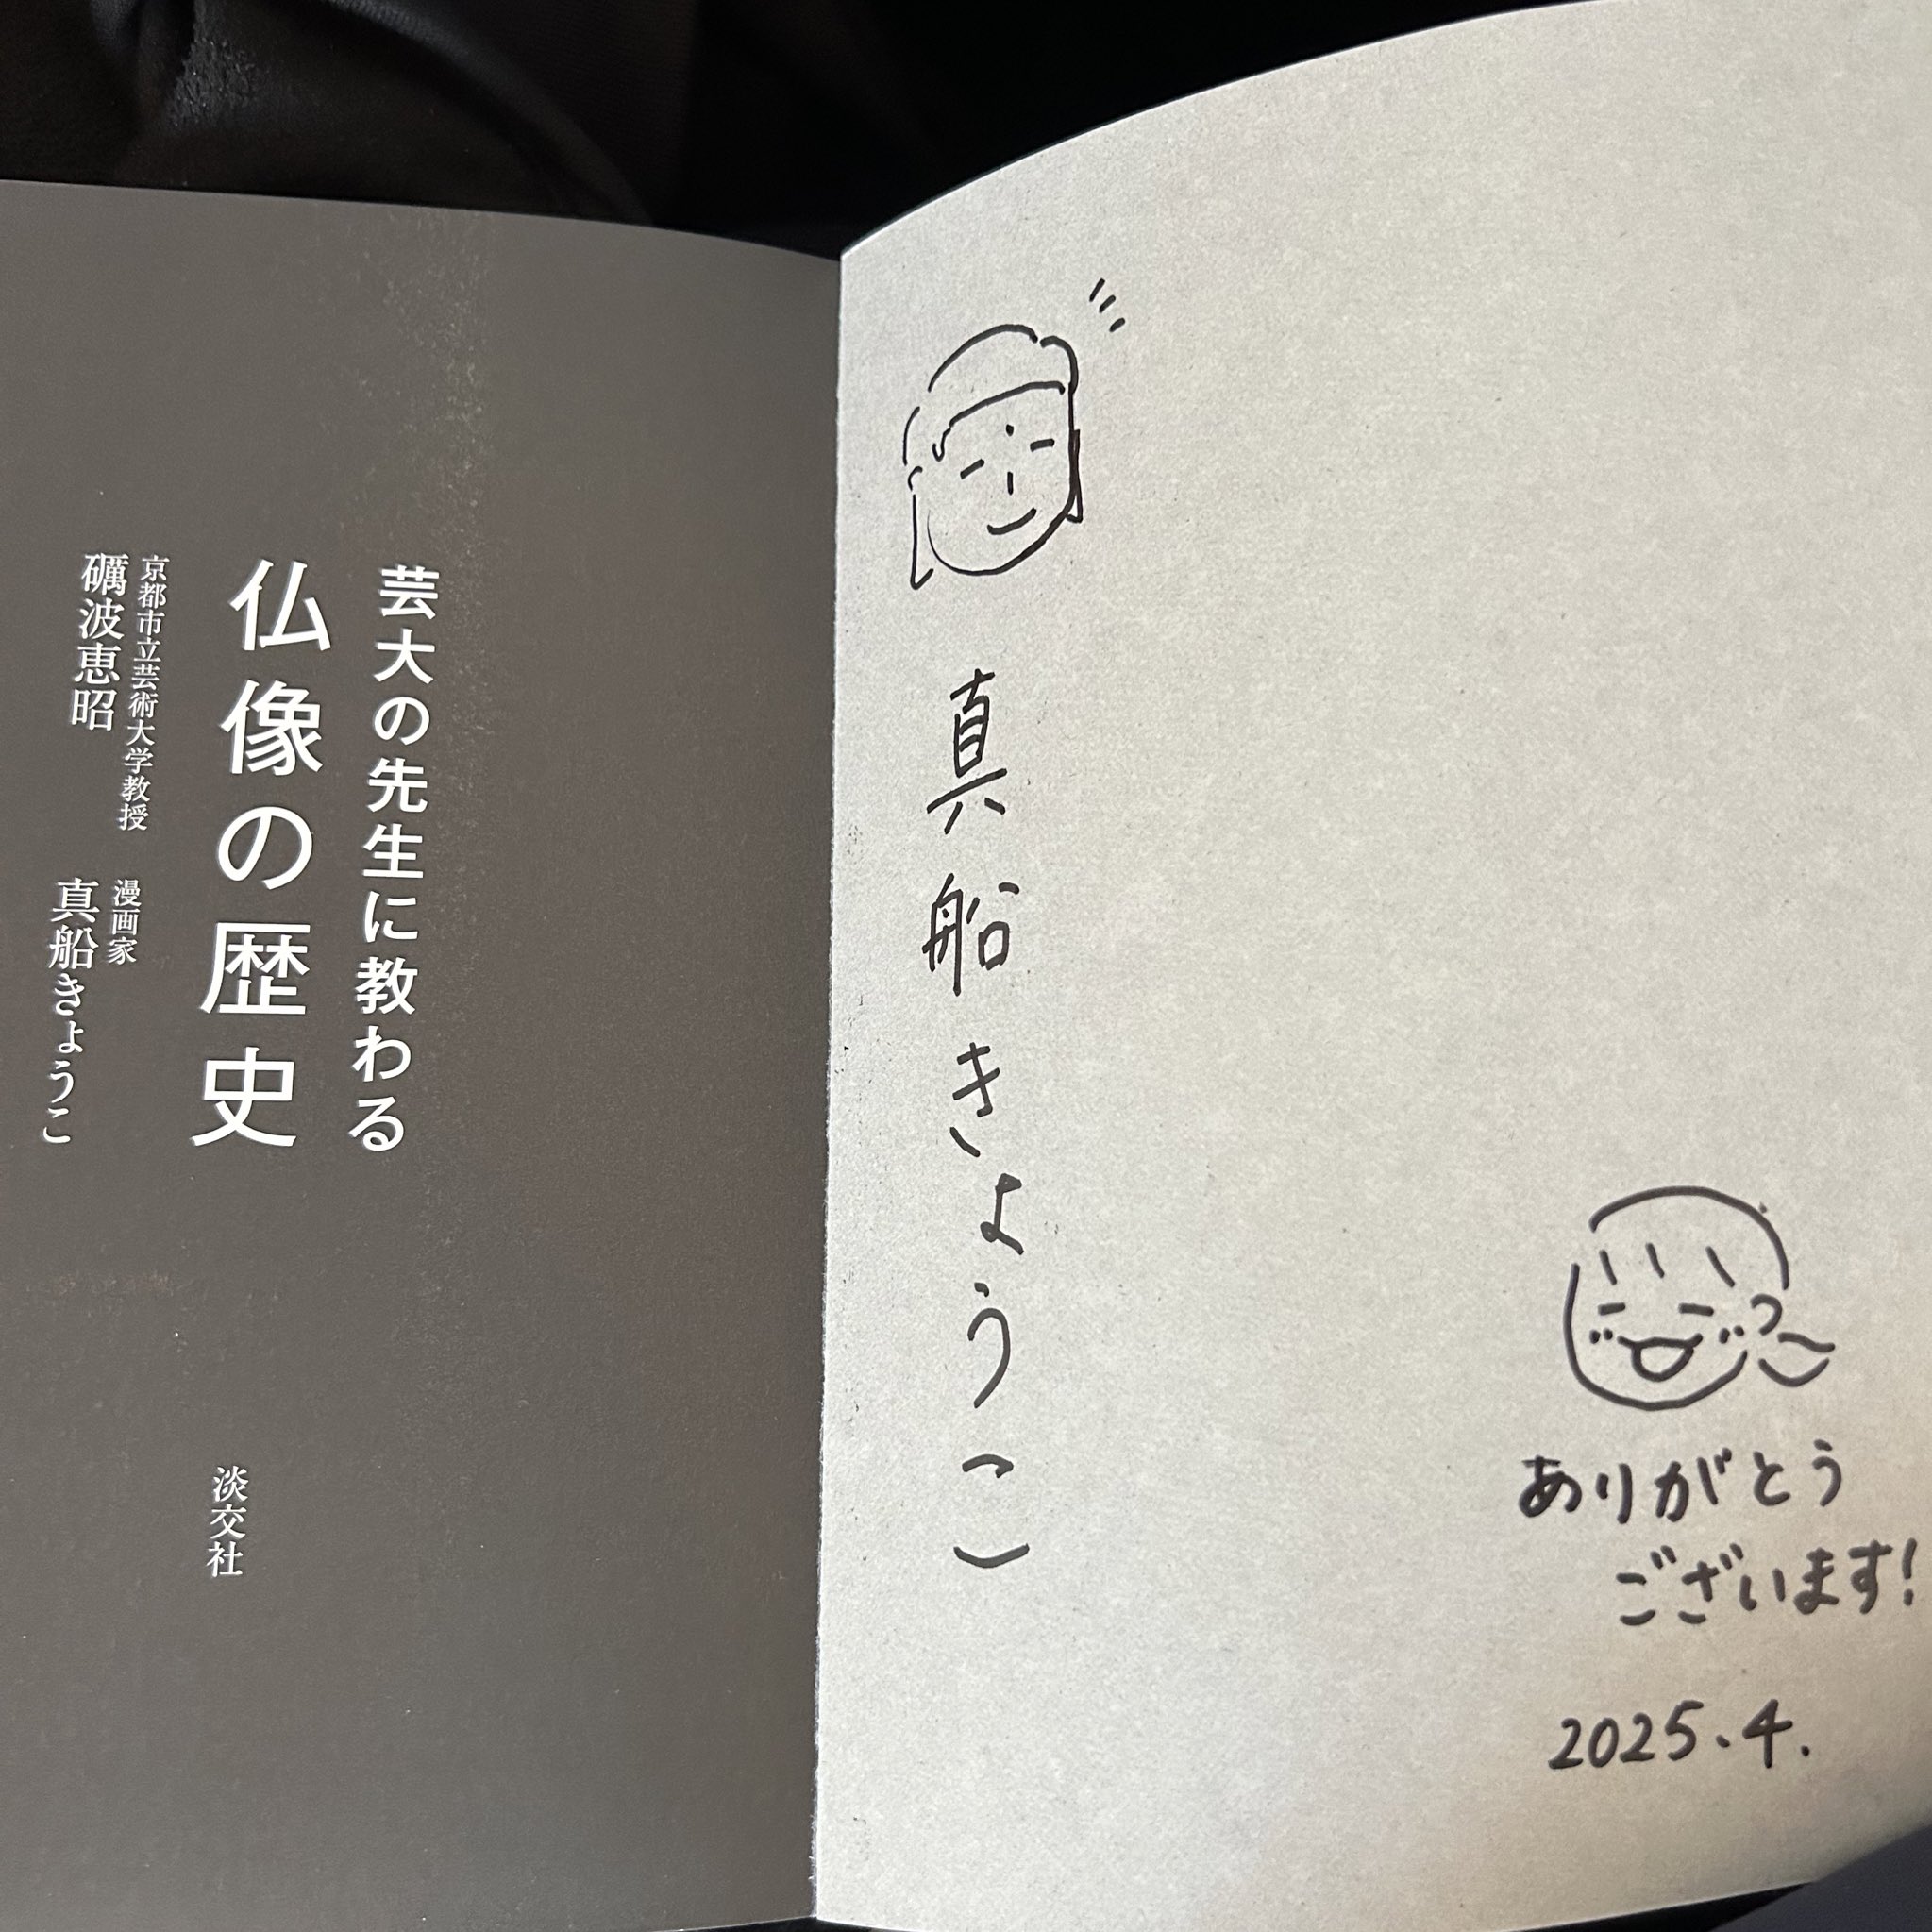 芸大の先生に教わる
仏像の歴史
京都市立芸術大学教授
礪波恵昭
漫画家
真船きょうこ
淡交社
真船きょうこ
ありがとう
ございます!
2025.4.